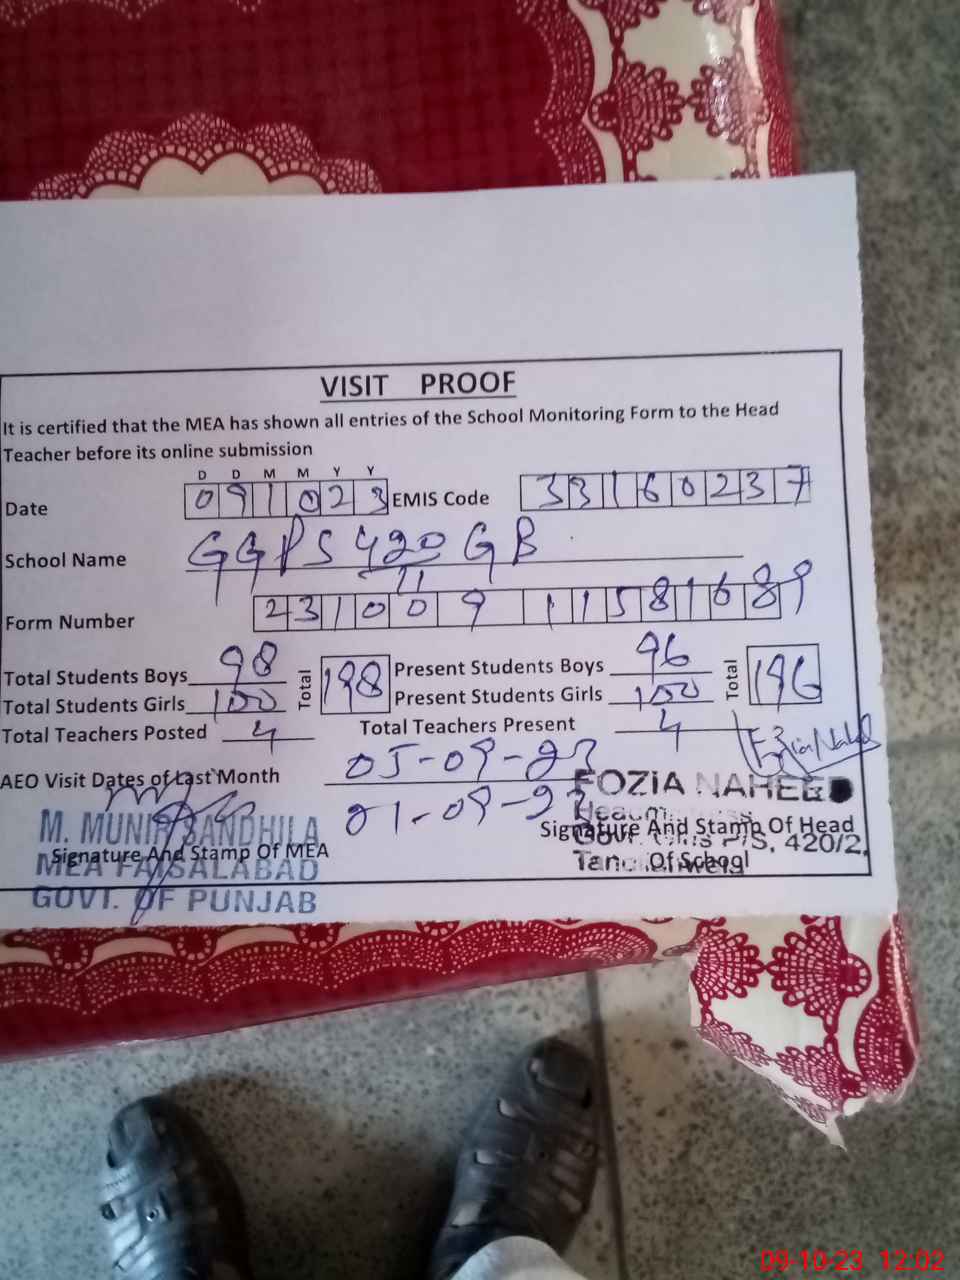 VISIT PROOF
It is certified that the MEA has shown all entries of the School Monitoring Form to the Head
Teacher before its online submission
D D M M Y Y
Date 0 9 1 0 2 3 EMIS Code 3 3 1 6 0 2 3 7
School Name GGPS 420 GB
Form Number 2 3 1 0 0 9 1 1 5 8 1 6 8 9
Total Students Boys 98 Total 198 Present Students Boys 96 Total 196
Total Students Girls 100 Present Students Girls 100
Total Teachers Posted 4 Total Teachers Present 4
AEO Visit Dates of Last Month 05-09-23
21-09-23
FOZIA NAHEED
M. MUNIR SANDHILA
Signature And Stamp Of MEA
MEA FAISALABAD
GOVT. OF PUNJAB
Signature And Stamp Of Head
Of School
P/S, 420/2
09-10-23 12:02